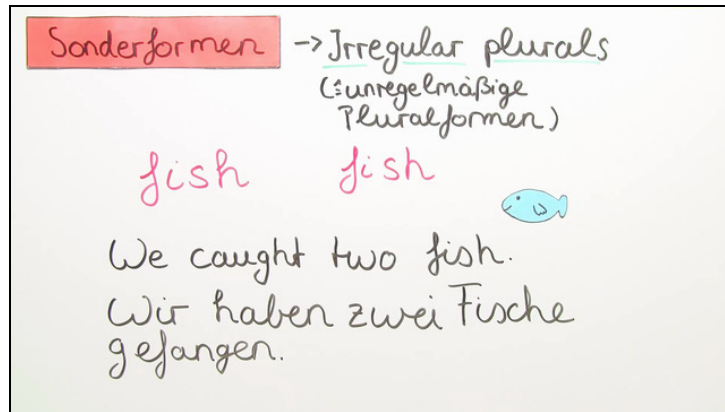 Sonderformen -> Irregular plurals
(≙unregelmäßige
Pluralformen)
fish fish
We caught two fish.
Wir haben zwei Fische
gefangen.